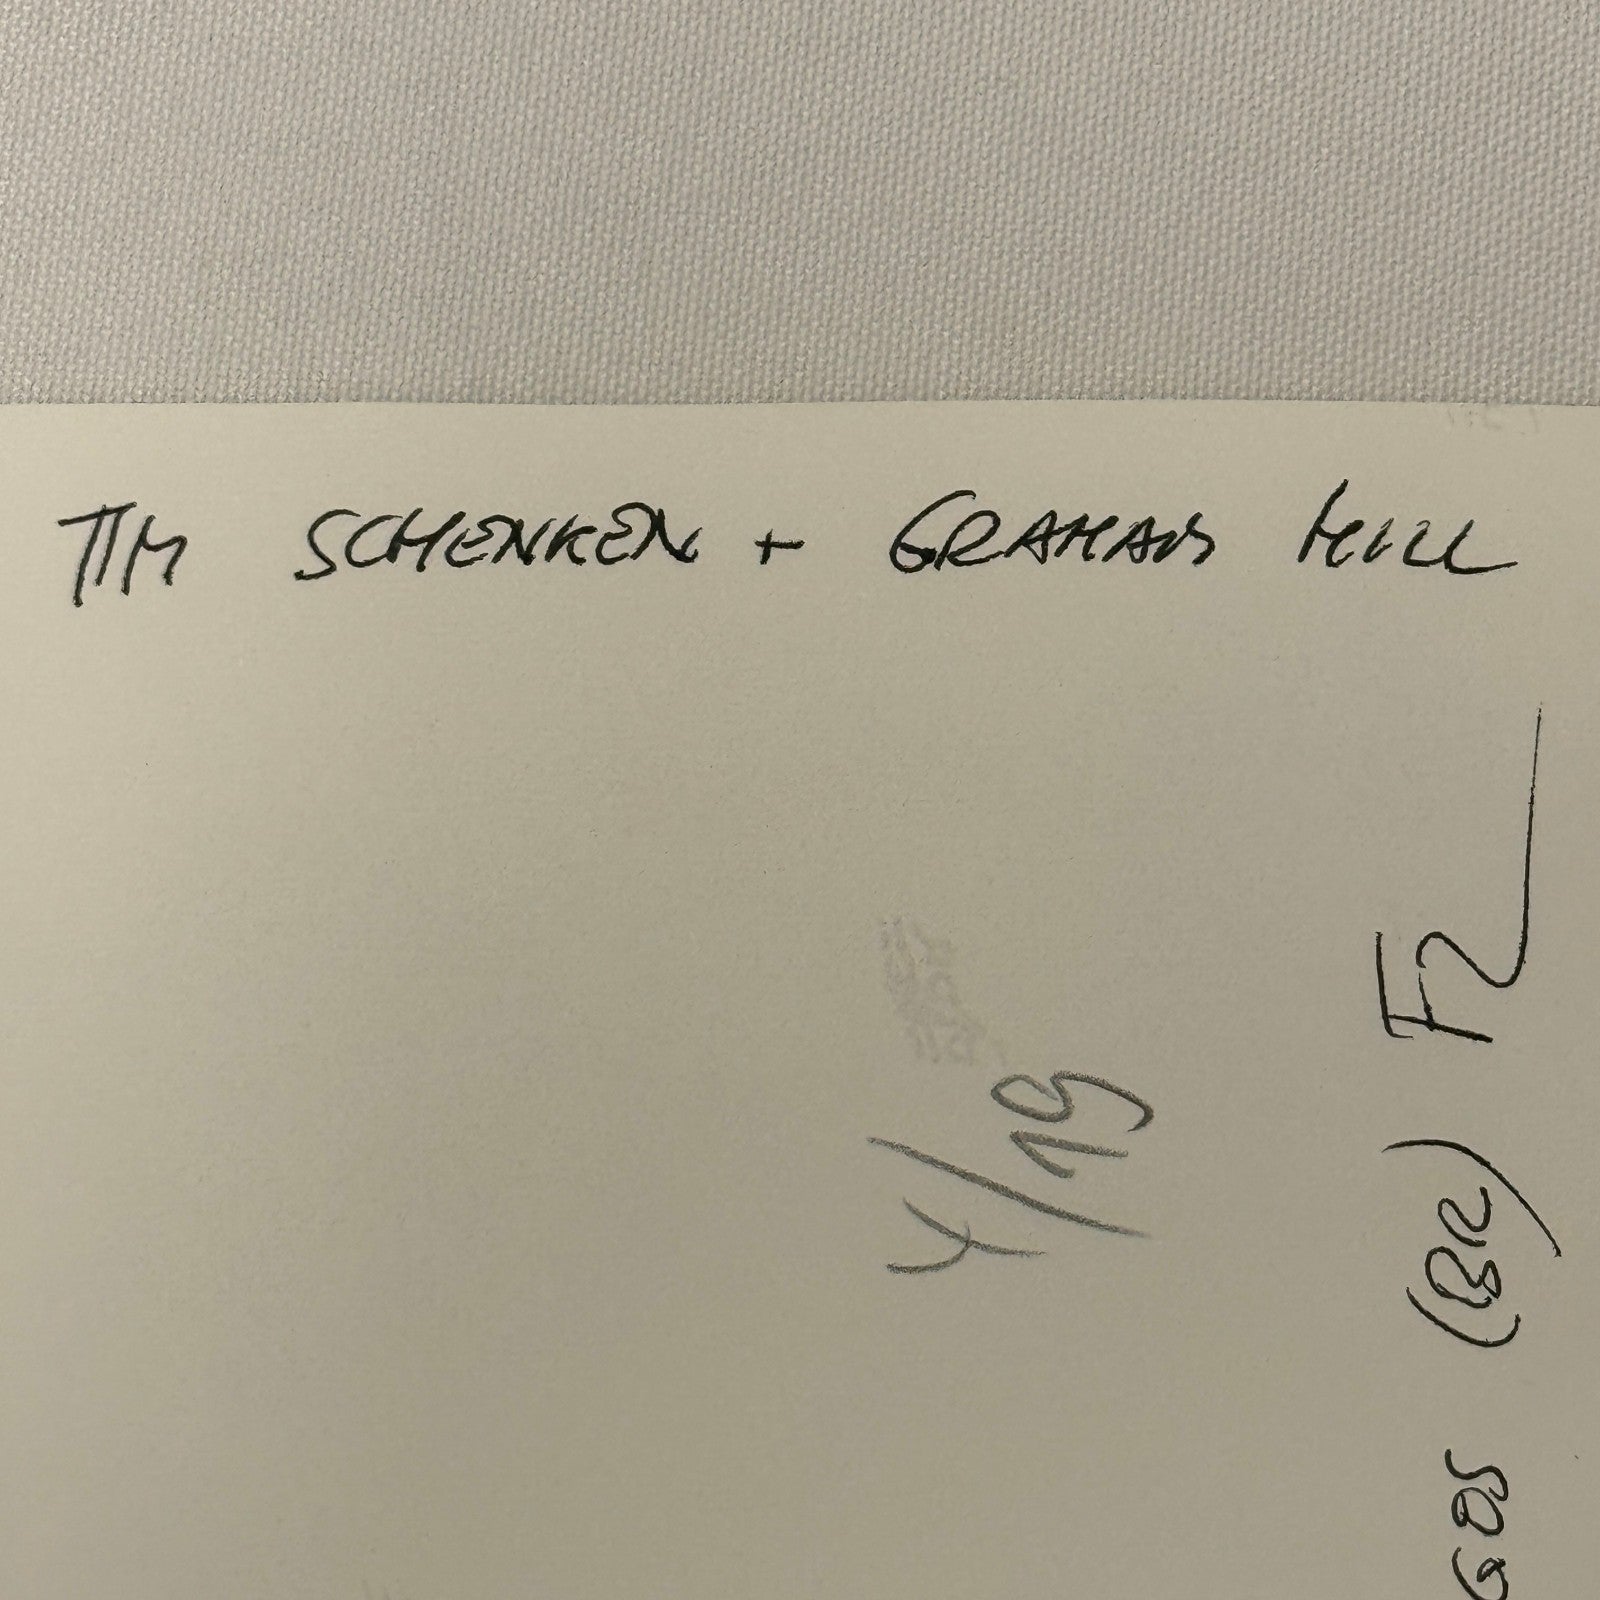 TIM SCHENKEN + GRAHAM HILL
Y/19
GOS (BR) F2